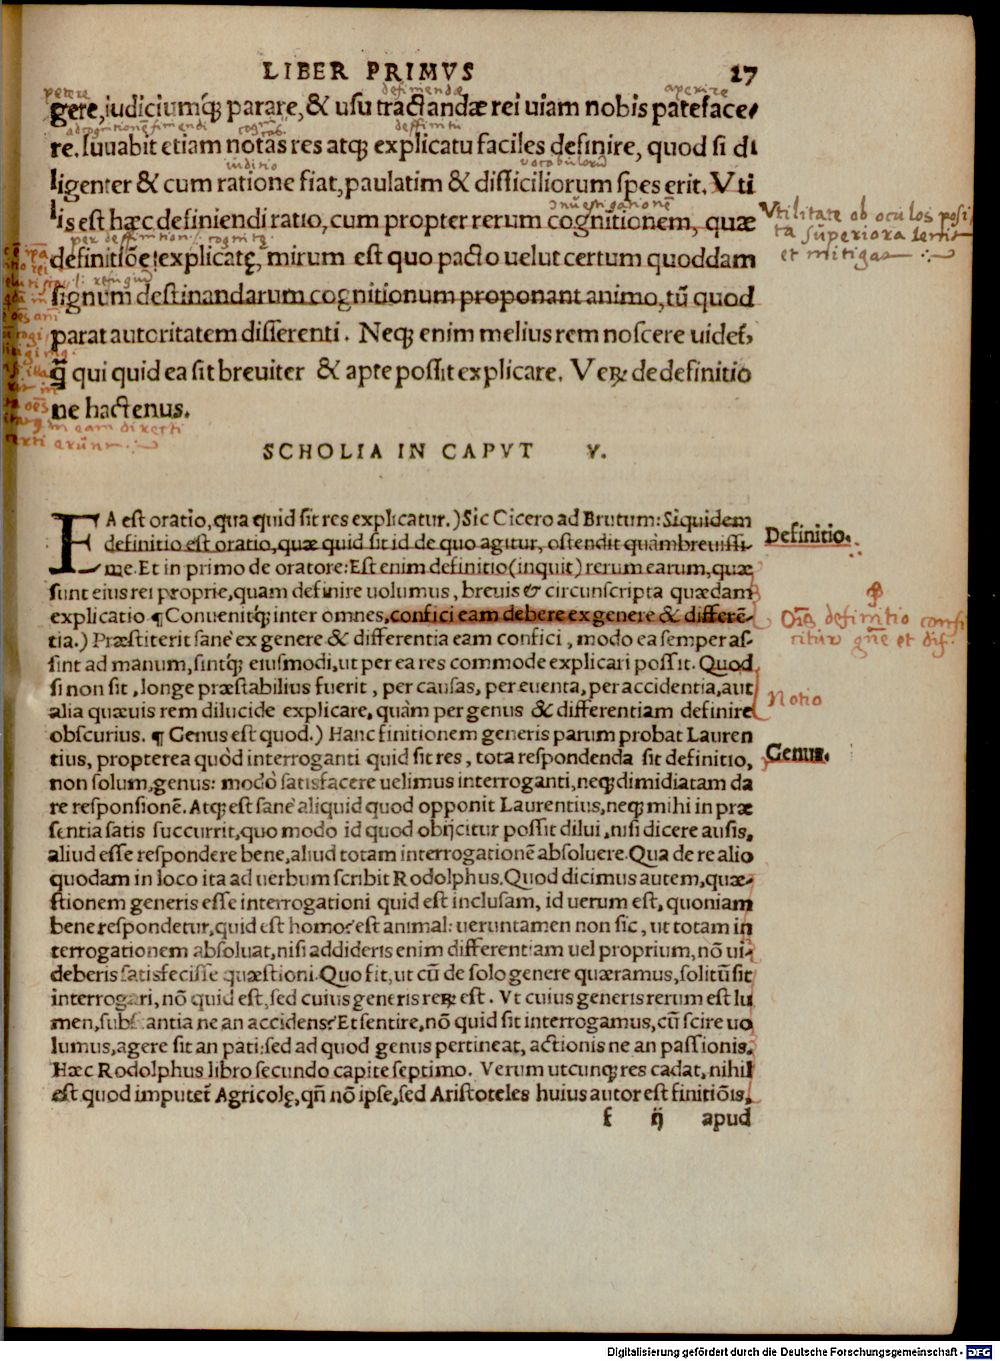 LIBER PRIMVS 17
petere definiendæ aperire
gere, iudiciumq́; parare, & usu tractandæ rei uiam nobis pateface⸗
definitu
re. Iuuabit etiam notas res atq; explicatu faciles definire, quod si di
iuditio vocabulorū
ligenter & cum ratione fiat, paulatim & difficiliorum spes erit. Vti
inuestigationē
lis est hæc definiendi ratio, cum propter rerum cognitionem, quæ
Vtilitate ob oculos posi
ta superiora lenit
et mitigat
per definition
definitiōe explicatę, mirum est quo pacto uelut certum quoddam
signum destinandarum cognitionum proponant animo, tū quod
parat autoritatem disserenti. Neq; enim melius rem noscere uidet,
q̄ qui quid ea sit breuiter & apte possit explicare. Veꝝ de definitio
ne hactenus.
SCHOLIA IN CAPVT V.
EA est oratio, qua quid sit res explicatur.) Sic Cicero ad Brutum: Siquidem
Definitio.
definitio est oratio, quæ quid sit id de quo agitur, ostendit quàm breuissi⸗
me. Et in primo de oratore: Est enim definitio (inquit) rerum earum, quæ
sunt eius rei proprie, quam definire uolumus, breuis & circunscripta quædam
explicatio ¶ Conuenitq́; inter omnes, confici eam debere ex genere & differē⸗
definitio confi
citur gn̄e et dif
tia.) Præstiterit sanè ex genere & differentia eam confici, modo ea semper as⸗
sint ad manum, sintq́; eiusmodi, ut per ea res commode explicari possit. Quod
si non sit, longe præstabilius fuerit, per causas, per euenta, per accidentia, aut
Notio
alia quæuis rem dilucide explicare, quàm per genus & differentiam definire
obscurius. ¶ Genus est quod.) Hanc finitionem generis parum probat Lauren
Genus.
tius, propterea quòd interroganti quid sit res, tota respondenda sit definitio,
non solum, genus: modò satisfacere uelimus interroganti, neq; dimidiatam da
re responsionē. Atq; est sanè aliquid quod opponit Laurentius, neq; mihi in præ
sentia satis succurrit, quo modo id quod obijcitur possit dilui, nisi dicere ausis,
aliud esse respondere bene, aliud totam interrogationē absoluere. Qua de re alio
quodam in loco ita ad uerbum scribit Rodolphus. Quod dicimus autem, quæ⸗
stionem generis esse interrogationi quid est inclusam, id uerum est, quoniam
bene respondetur, quid est homo? est animal: ueruntamen non sic, ut totam in
terrogationem absoluat, nisi addideris enim differentiam uel proprium, nō ui⸗
deberis satisfecisse quæstioni. Quo fit, ut cū de solo genere quæramus, solitū sit
interrogari, nō quid est, sed cuius generis reꝝ est. Vt cuius generis rerum est lu
men, substantia ne an accidens? Et sentire, nō quid sit interrogamus, cū scire uo
lumus, agere sit an pati: sed ad quod genus pertineat, actionis ne an passionis.
Hæc Rodolphus libro secundo capite septimo. Verum utcunq; res cadat, nihil
est quod imputet Agricolę, qn̄ nō ipse, sed Aristoteles huius autor est finitiōis,
f ij apud
Digitalisierung gefördert durch die Deutsche Forschungsgemeinschaft - DFG